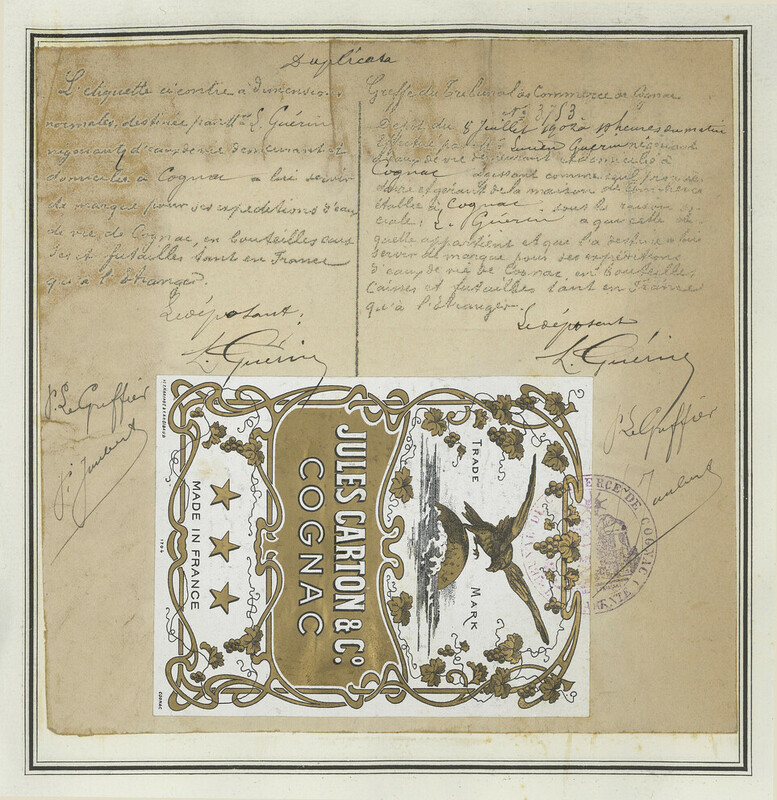 Duplicata
L'étiquette ci contre à dimensions
normales, destinée par Mr L. Guérin
négociant d'eaux de vie demeurant et
domicilié à Cognac a lui servir
de marque pour ses expéditions d'eaux
de vie de Cognac, en bouteilles cais
ses et futailles tant en France
qu'à l'étranger.
Le déposant:
L. Guérin
P. Le Greffier
Greffe du Tribunal de Commerce de Cognac
No 3753
Dépôt du 8 Juillet heures du matin
Effectué par Mr Lucien Guérin négociant
d'eaux de vie demeurant et domicilié à
Cognac agissant comme seul proprié
taire et gérant de la maison de commerce
établie à Cognac sous la raison so
ciale: L. Guérin a qui cette éti
quette appartient et que l'a destinée a lui
servir de marque pour ses expéditions
d'eaux de vie de Cognac, en bouteilles
caisses et futailles tant en France
qu'à l'étranger.
Le déposant
L. Guérin
P. Le Greffier
TRADE MARK
JULES CARTON & Co
COGNAC
MADE IN FRANCE
COGNAC
MERCE DE COGNAC